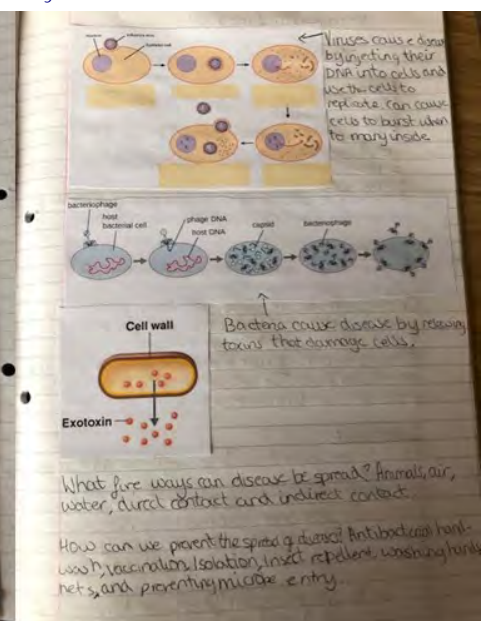 Influenza virus
Epithelial cell
Viruses cause disease
by injecting their
DNA into cells and
use the cells to
replicate. Can cause
cells to burst when
to many inside
bacteriophage
host
bacterial cell
phage DNA
host DNA
capsid
bacteriophage
Bacteria cause disease by releasing
toxins that damage cells.
Cell wall
Exotoxin
What five ways can disease be spread? Animals, air,
water, direct contact and indirect contact
How can we prevent the spread of disease? Antibacterial hand-
wash, vaccination, Isolation, insect repellent, washing hands
nets, and preventing microbe entry.